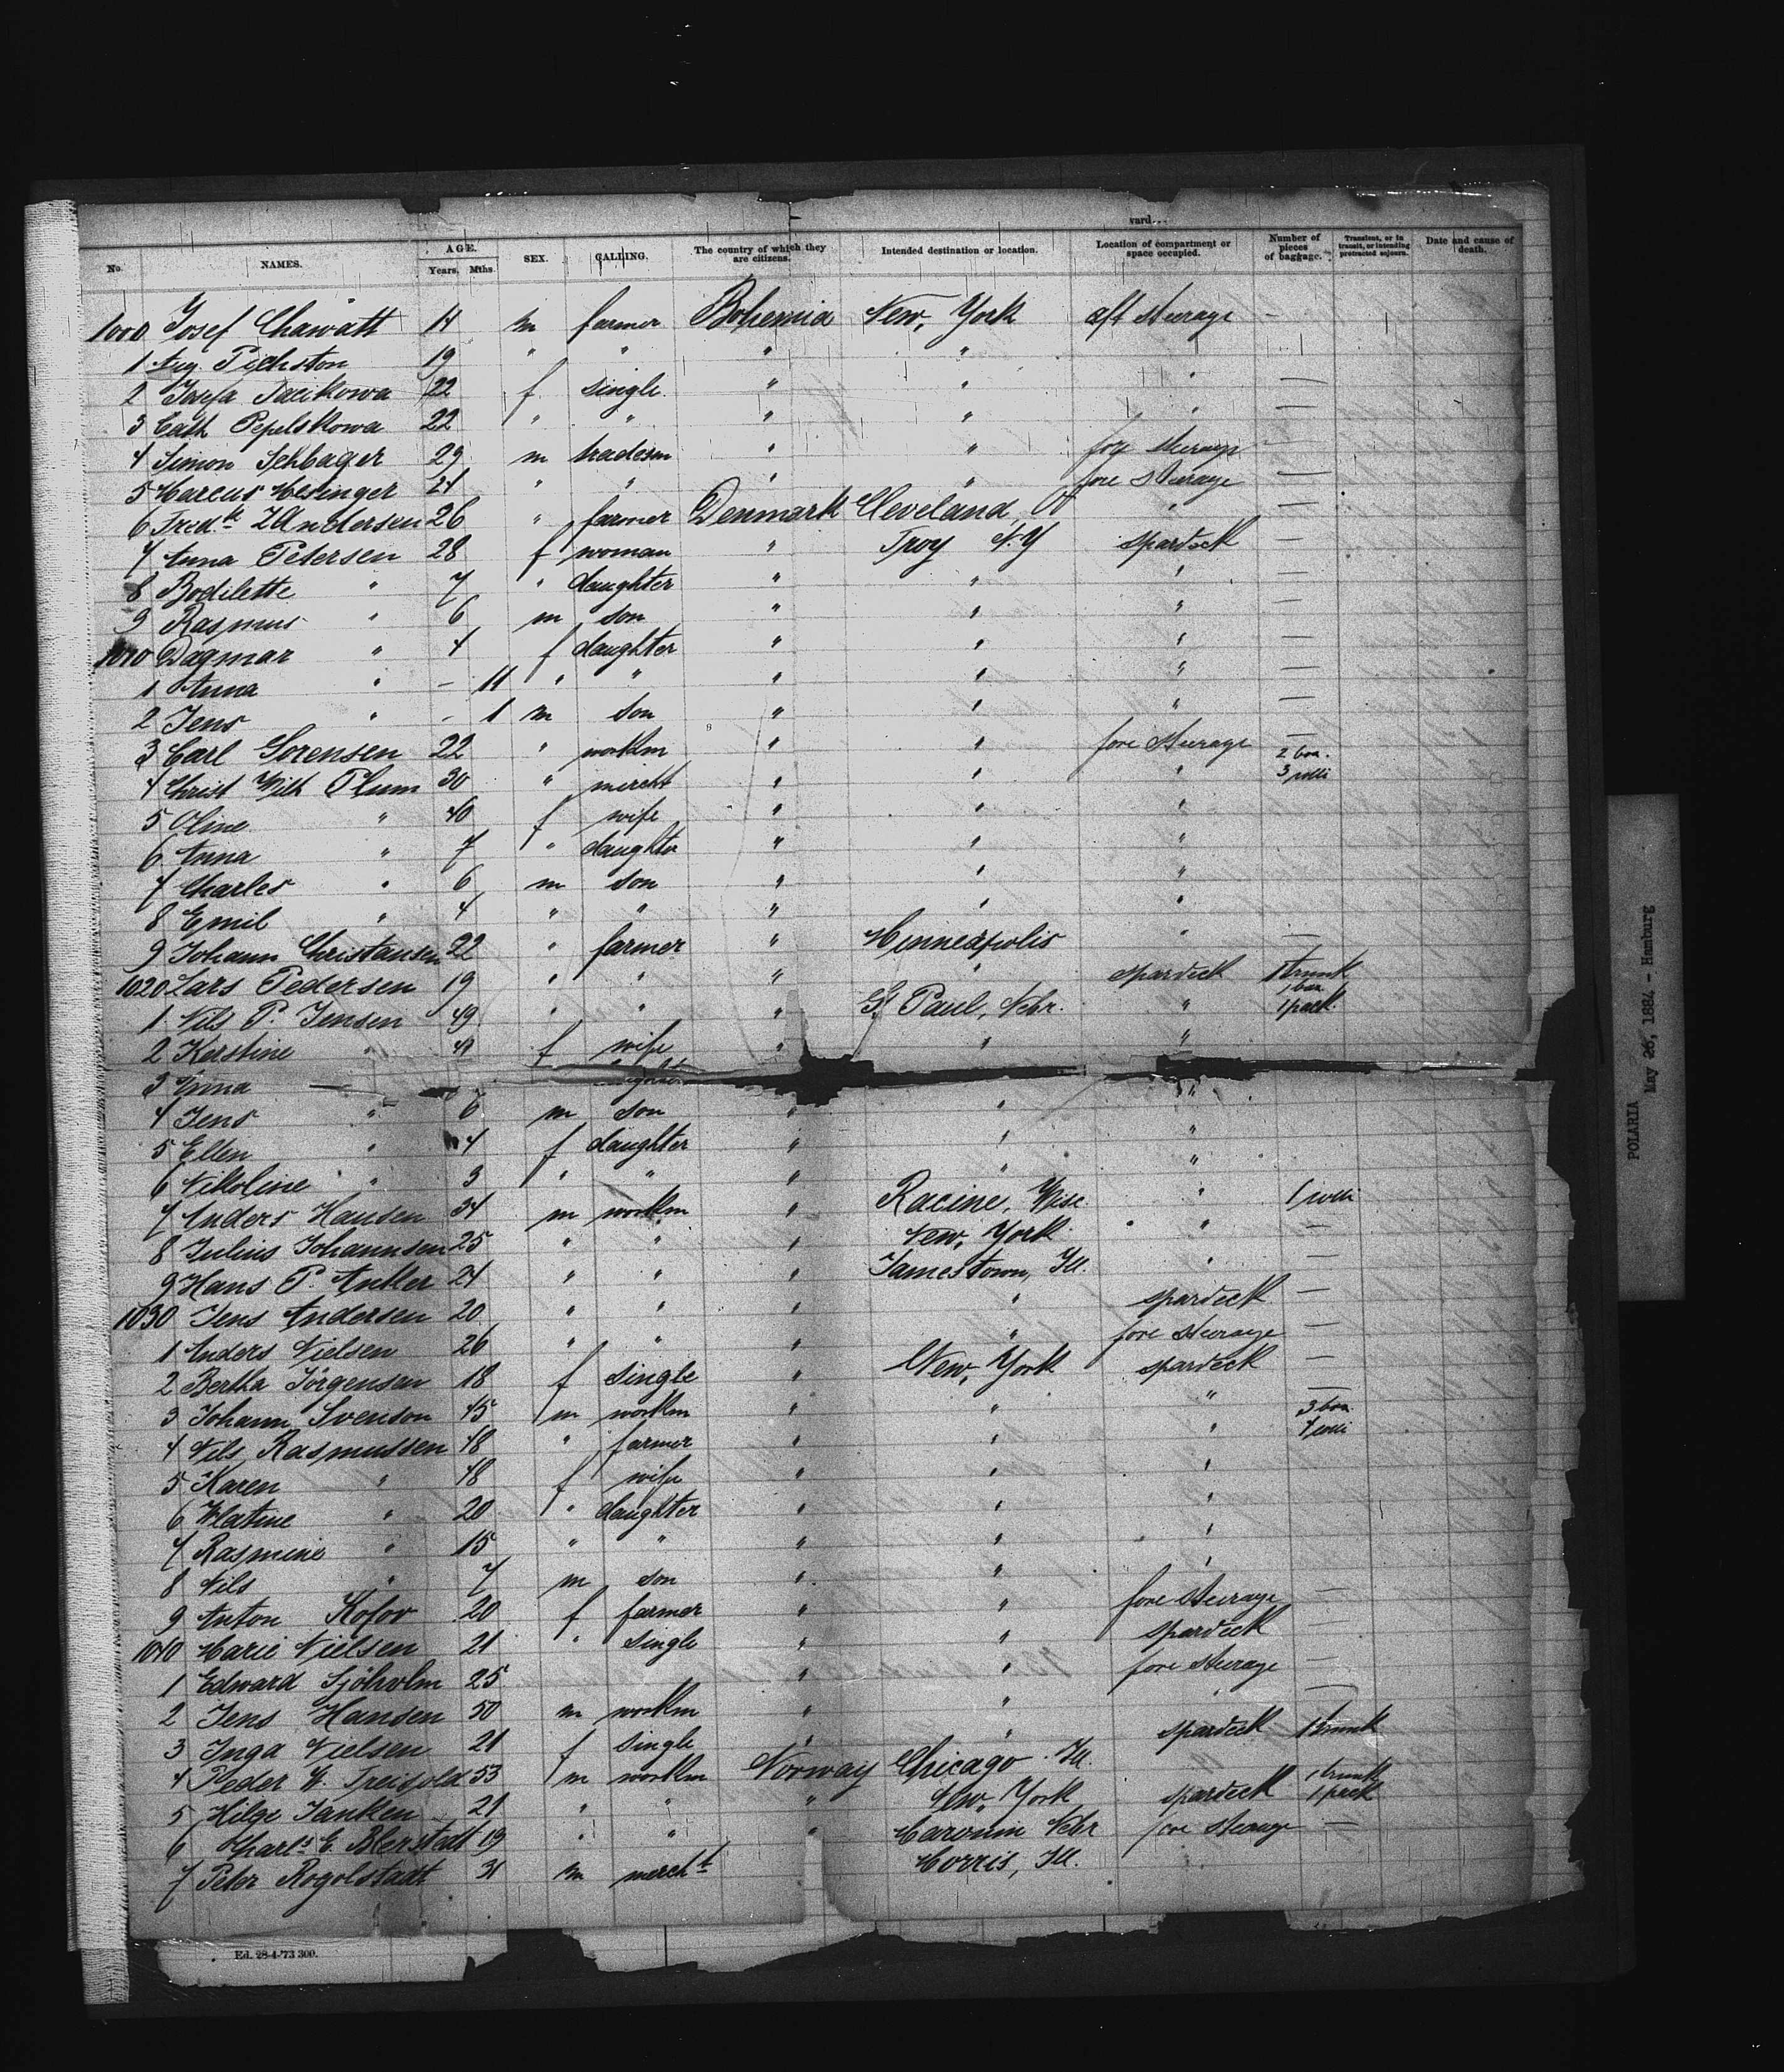 vard...
No. NAMES. AGE. Years. Mths. SEX. CALLING. The country of which they are citizens. Intended destination or location. Location of compartment or space occupied. Number of pieces of baggage. Transient, or in transit, or intending protracted sojourn. Date and cause of death.
1000 Josef Chawatt 14 m farmer Bohemia New York aft steerage —
1 Aug. 19 " " " "
2 Josefa 22 f single " " " —
3 Cath Pepelskowa 22 " " " " " —
4 Simon Schbager 29 m tradesm " " fore steerage —
5 Marcus Mesinger 24 " " " " fore steerage —
6 Fredk. Andersen 26 " farmer Denmark Cleveland, O " —
7 Anna Petersen 28 f woman " Troy N.Y spardeck —
8 Bodilette " 7 " daughter " " " —
9 Rasmus " 6 m son " " " —
1010 Dagmar " 4 f daughter " " " —
1 Anna " – 11 " " " " " —
2 Jens " – 1 m son " " " —
3 Carl Sorensen 22 " workm " " fore steerage —
4 Christ Wilh Plum 30 " mercht " " " 2 box. 3 colli
5 Oline " 40 f wife " " "
6 Anna " 7 " daughter " " "
7 Charles " 6 m son " " "
8 Emil " 4 " " " " "
9 Johann Christansen 22 " farmer " Minneapolis " —
1020 Lars Pedersen 19 " " " " spardeck 1 trunk
1 Nils P. Jensen 49 " " " St. Paul, Nebr. " 1 box 1 pack
2 Kerstine " 41 f wife " " "
3 Anna "
4 Jens " 6 m son " " "
5 Ellen " 4 f daughter " " "
6 Nikoline " 3 " " " " "
7 Anders Hansen 34 m workm " Racine, Wisc " 1 colli
8 Julius Johannsen 25 " " " New York " —
9 Hans P. Anker 24 " " " Jamestown, Ill. " —
1030 Jens Andersen 20 " " " " spardeck —
1 Anders Nielsen 26 " " " " fore steerage —
2 Bertha Jörgensen 18 f single " New York spardeck —
3 Johann Svenson 45 m workm " " " —
4 Nils Rasmussen 48 " farmer " " " 3 box 4 colli
5 Karen " 48 f wife " " "
6 " 20 " daughter " " "
7 Rasmine " 15 " " " " "
8 Nils " 7 m son " " "
9 Anton Kofov 20 f farmer " " fore steerage —
1040 Marie Nielsen 21 " single " " spardeck —
1 Edward Sjöholm 25 " " fore steerage —
2 Jens Hansen 50 m workm " " " —
3 Inga Nielsen 21 f single " " spardeck 1 trunk
4 Peder 53 m workm Norway Chicago Ill.
5 Hilge Janken 21 " " " New York spardeck 1 trunk 1 pack
6 19 " " " Nebr fore steerage —
7 Peter Rogolstadt 31 m mercht Morris, Ill.
Ed. 28-4-'73 300.
POLARIA
May 26, 1884 - Hamburg